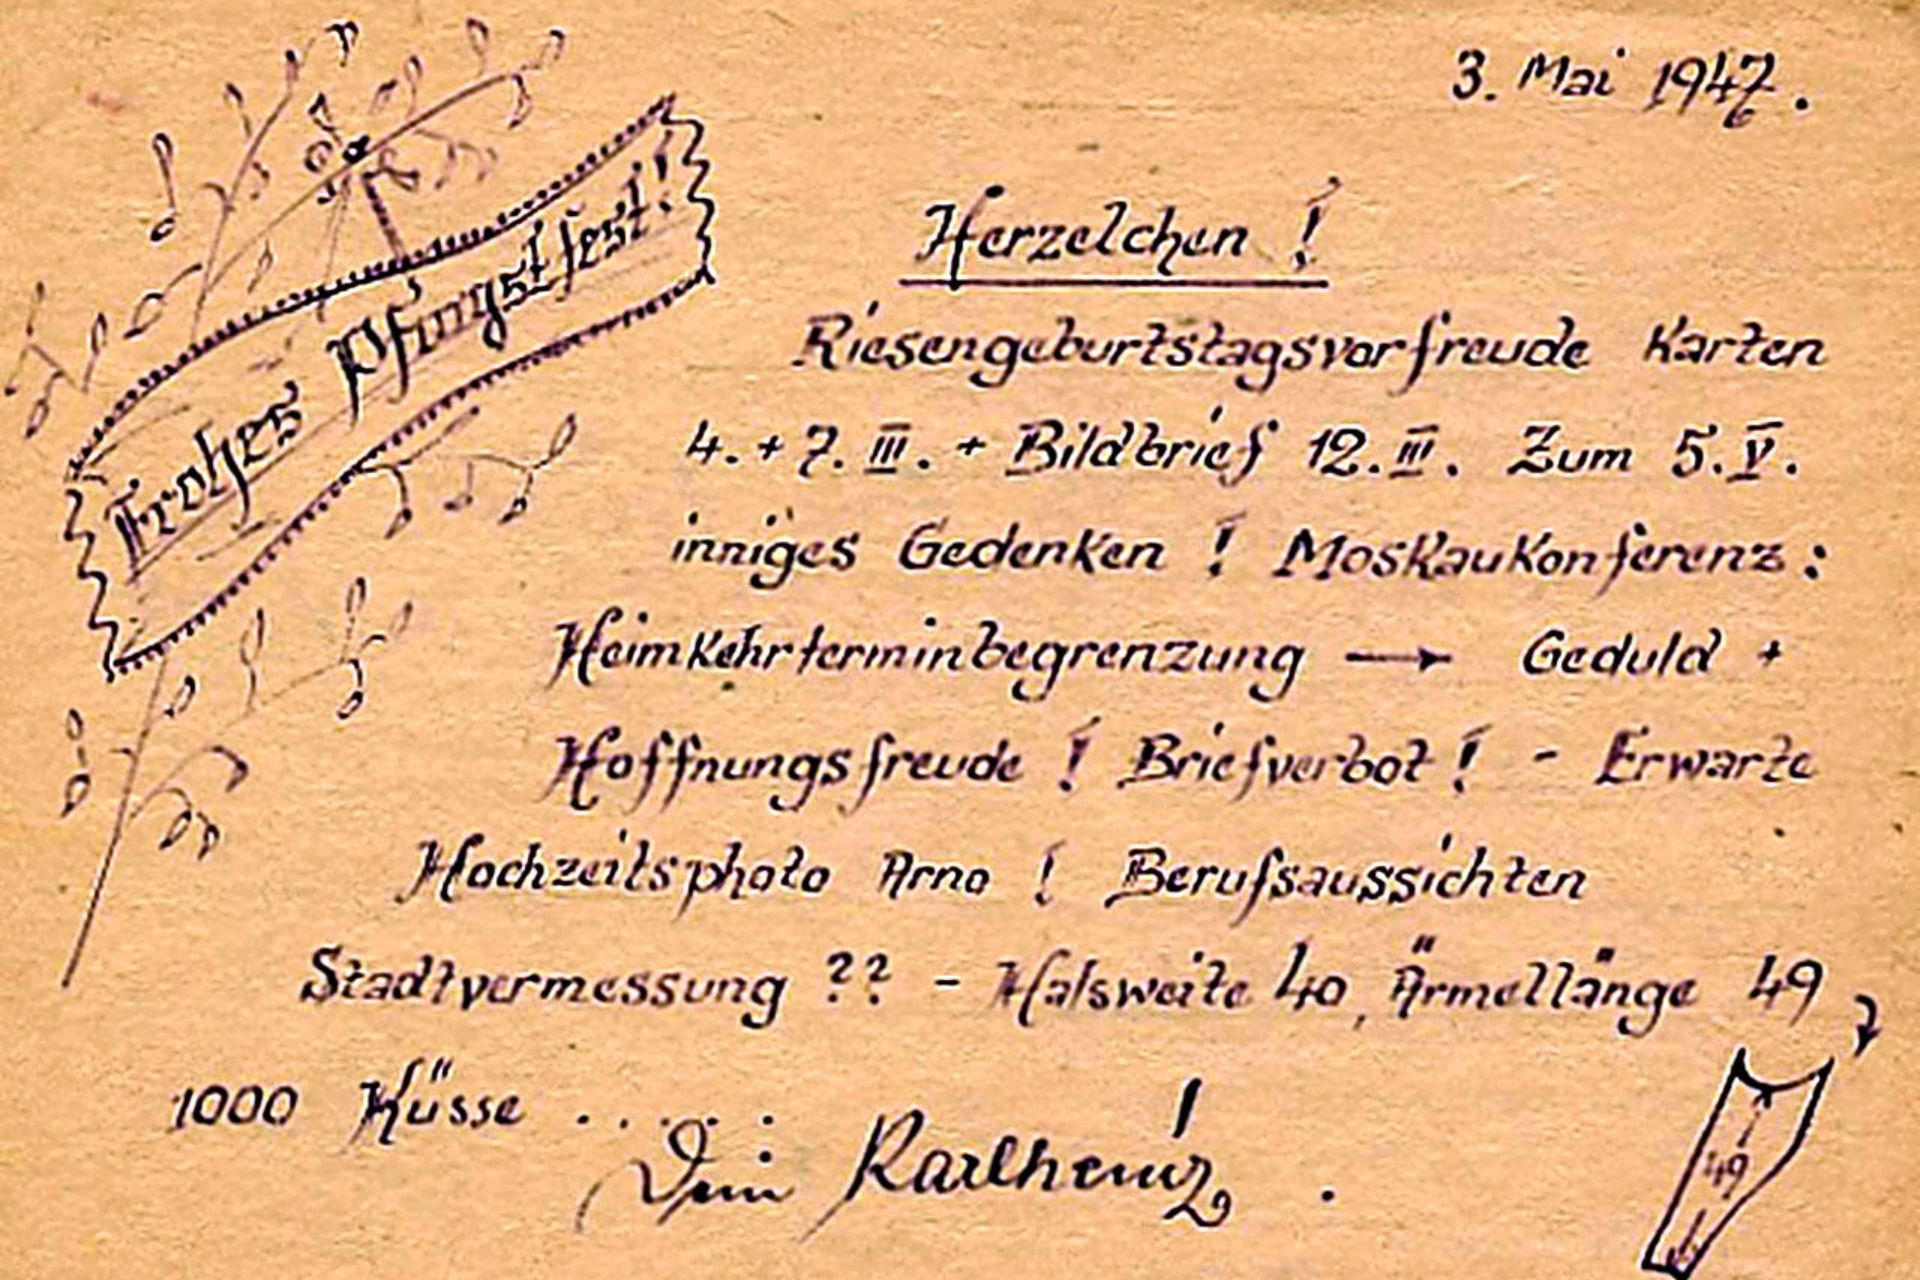 3. Mai 1947.
Frohes Pfingstfest!
Herzelchen !
Riesengeburtstagsvorfreude Karten
4. + 7. III. + Bildbrief 12. III. Zum 5. V.
inniges Gedenken ! Moskaukonferenz :
Heimkehrterminbegrenzung → Geduld +
Hoffnungsfreude ! Briefverbot ! - Erwarte
Hochzeitsphoto Arno ! Berufsaussichten
Stadtvermessung ?? - Halsweite 40, Ärmellänge 49
1000 Küsse . . . . . .
Dein Karlheinz !
49